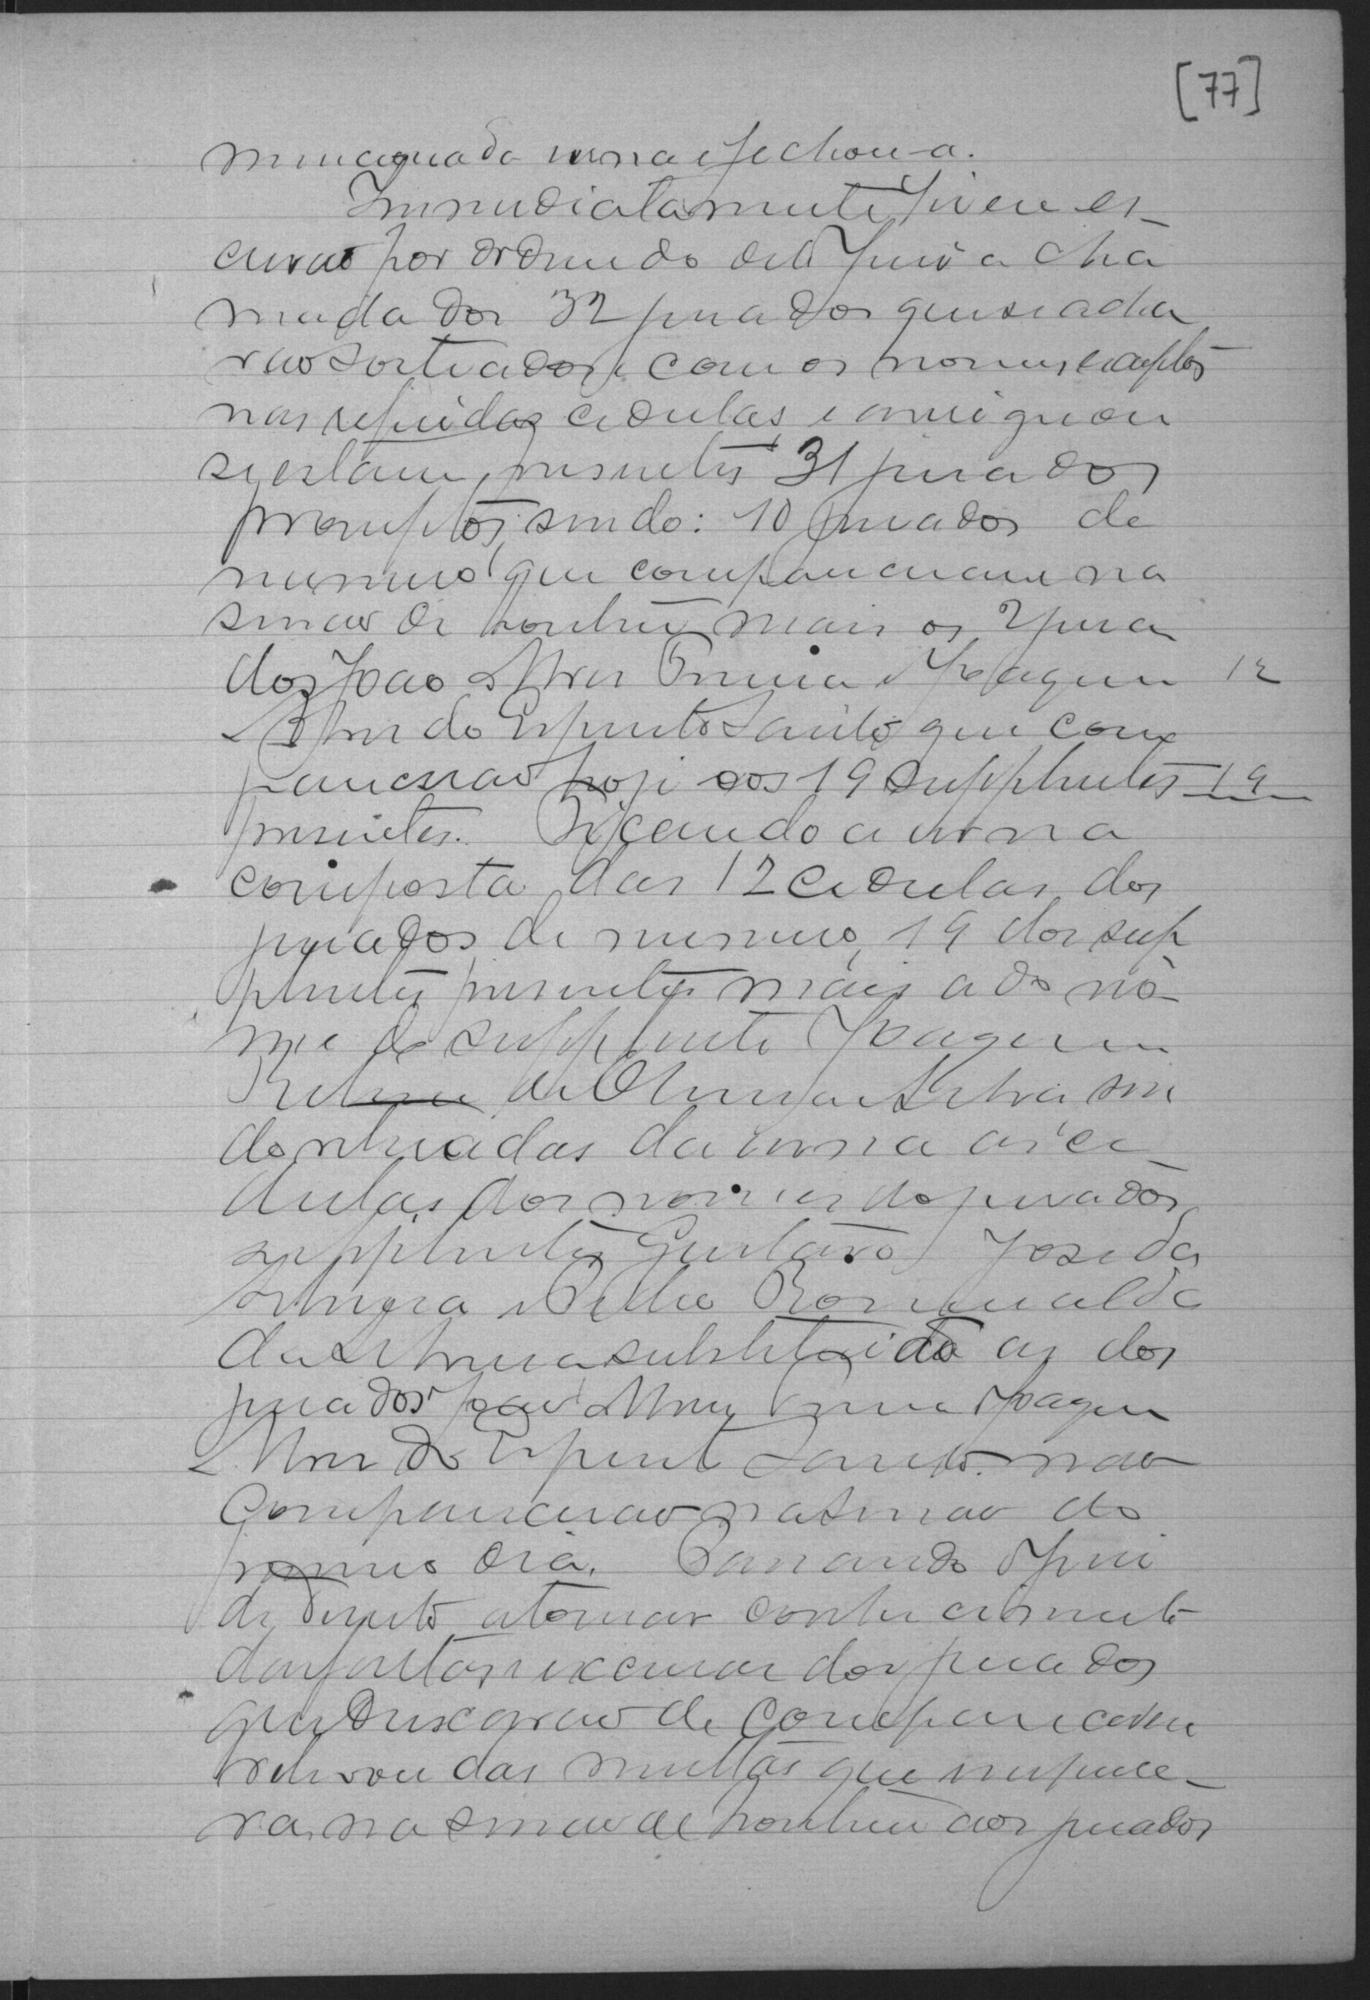 [77]
mencionada urna e fechou-a.
Immediatamente fiz eu es-
crivão por ordem do do Juiz a cha
mada dos 32 jurados que se acha
vão sorteados e com os nomes escriptos
nas referidas cedulas e averiguou
se estarem presentes 31 jurados
promptos, sendo: 10 jurados de
numero que compareceram na
sessão de hontem mais os 2 jura
dos João Alves Pereira e Joaquim 12
Alves do Espirito Santo que com
pareceram hoje e os 19 supplentes 19
presentes. Ficando a urna
composta das 12 cedulas dos
jurados de numero, 19 dos sup
plentes presentes mais a do no-
me do supplente Joaquim
de Oliveira e Silva sen
do retiradas da urna as ce-
dulas dos nomes dos jurados
supplentes Gustavo José da
Silveira e Pedro Romualdo
da Silveira substituido as dos
jurados João Alves Pereira e Joaquim
Alves do Espirito Santo não
comparecerão na sessão do
primeiro dia. Passando o Juiz
de Direito a tomar conhecimento
das faltas e excusas dos jurados
que deixarão de comparecer
relevou das multas que impuze-
ra na sessão de hontem aos jurados